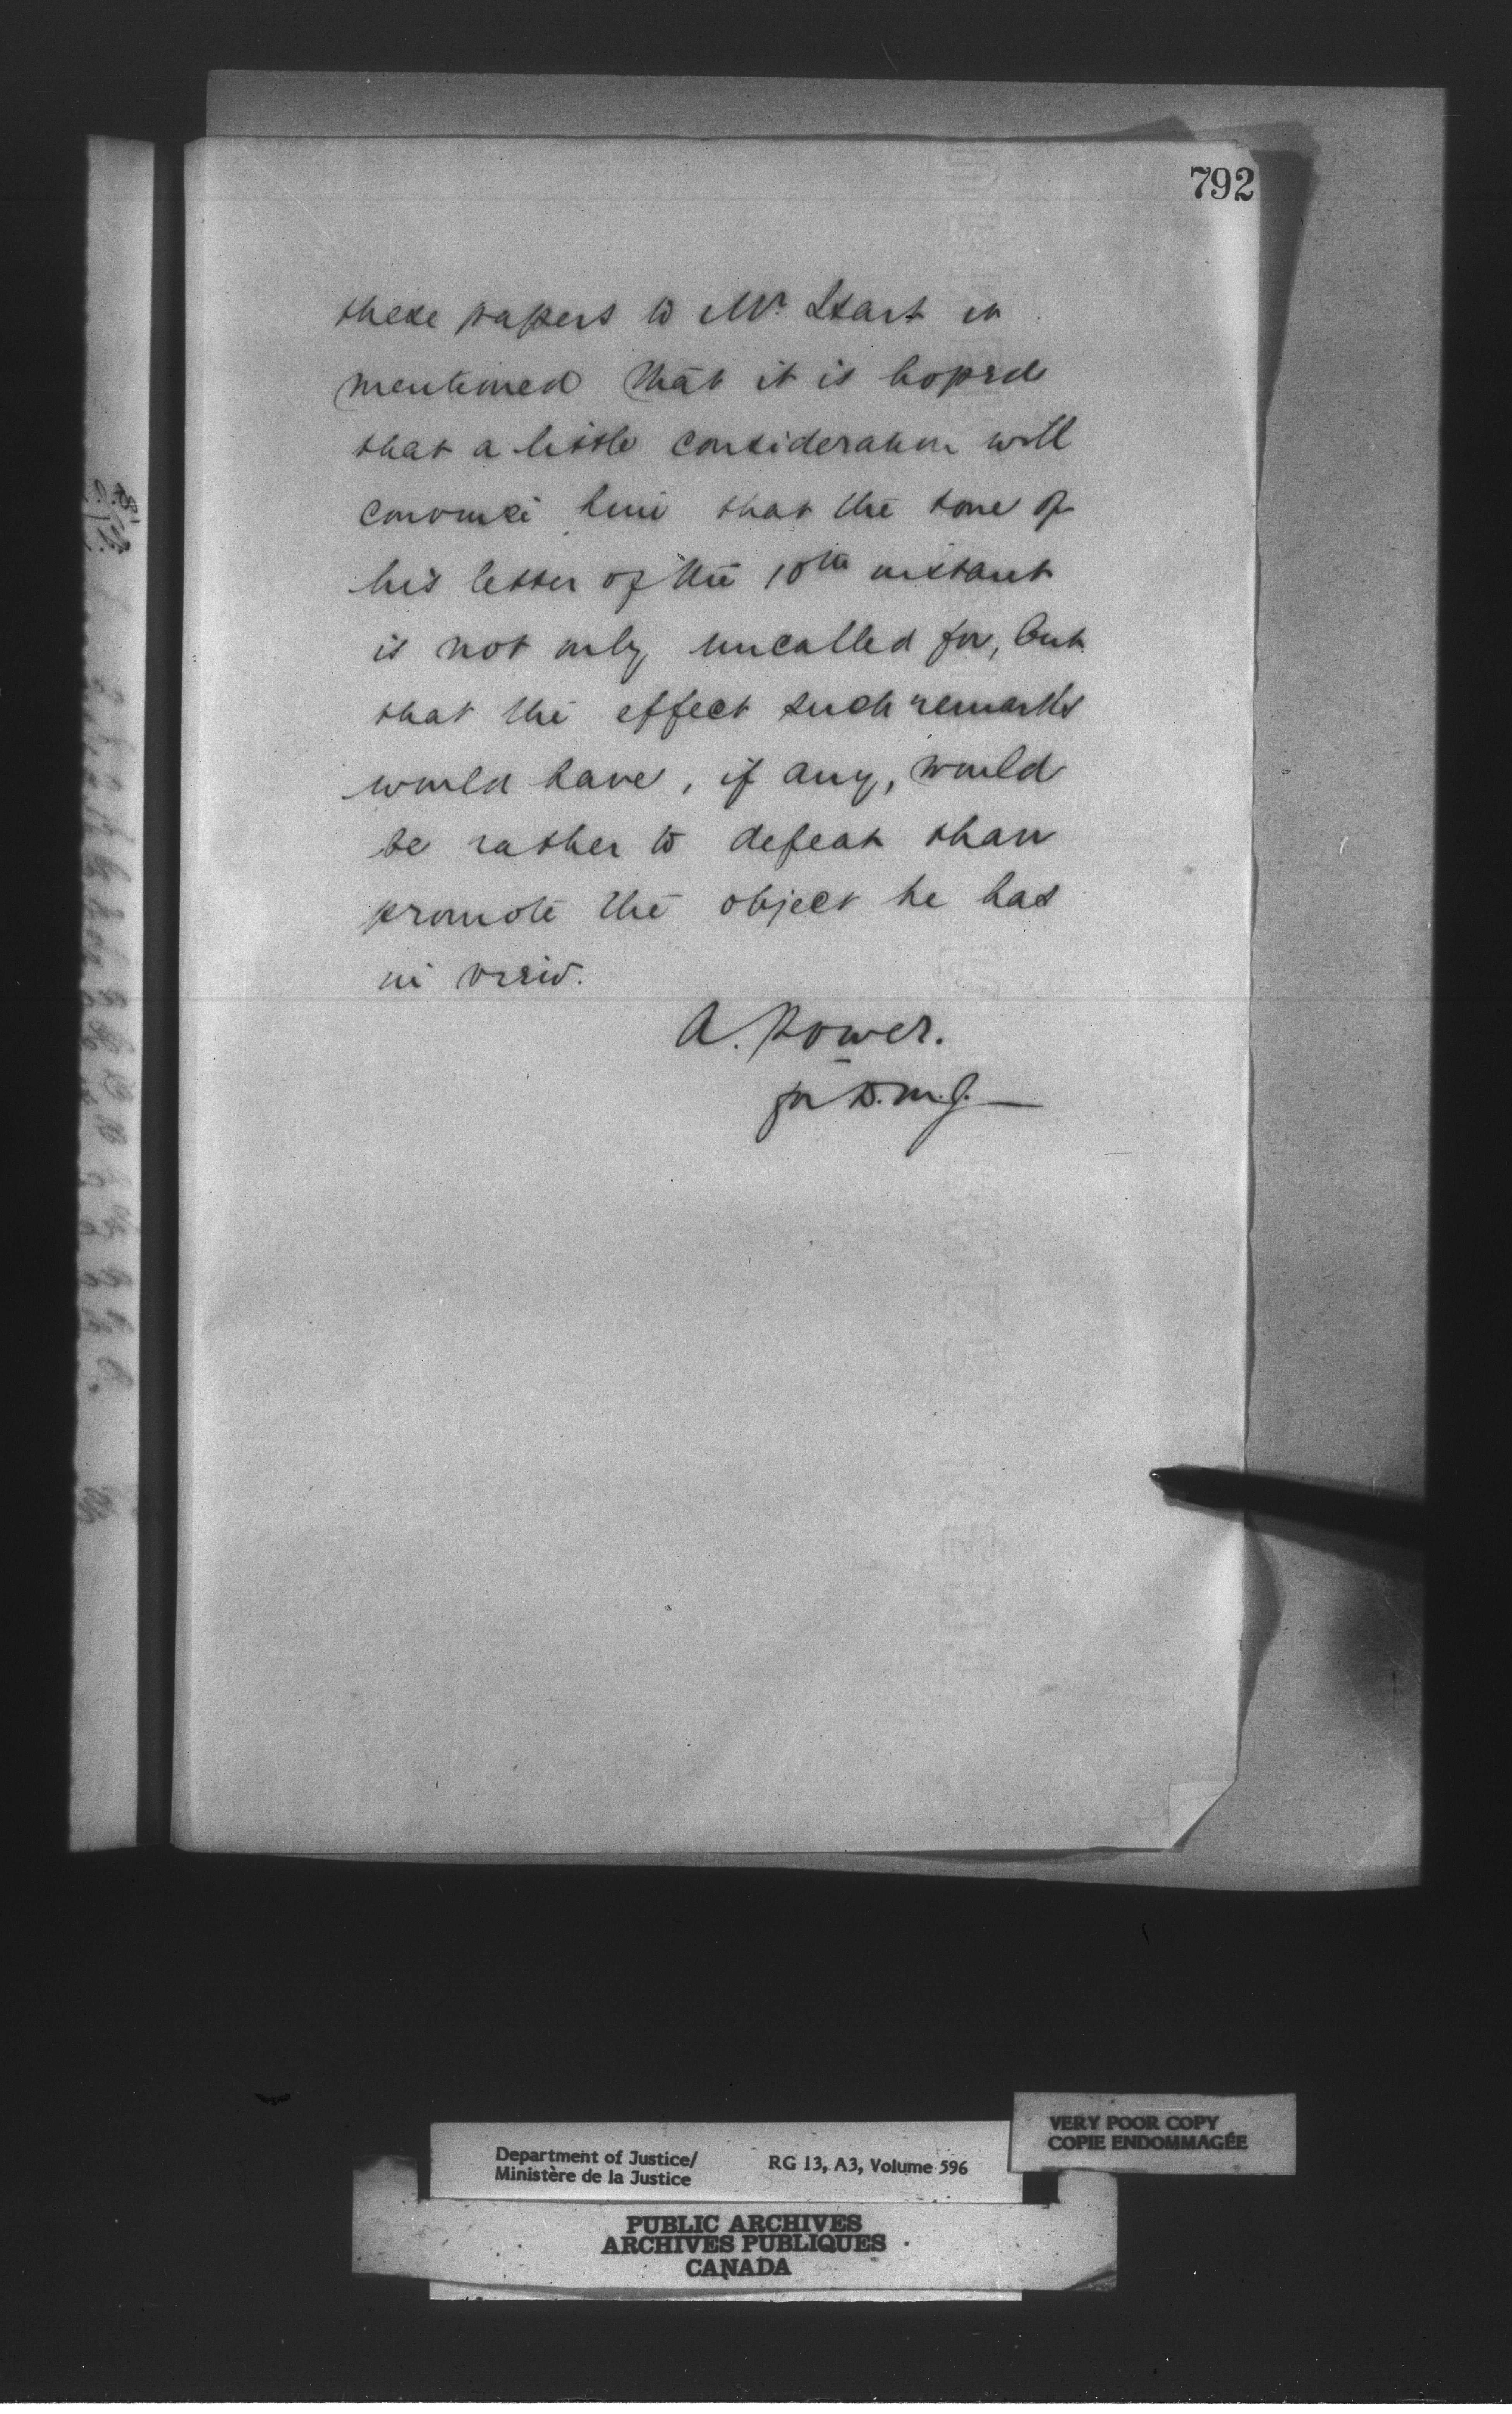 792
these papers to Mr. Start it
mentioned that it is hoped
that a little consideration will
convince him that the tone of
his letter of the 10th instant
is not only uncalled for, but
that the effect such remarks
would have, if any, would
be rather to defeat than
promote the object he has
in view.
A. Power.
for D.M.J.
VERY POOR COPY
COPIE ENDOMMAGÉE
Department of Justice/
Ministère de la Justice
RG 13, A3, Volume 596
PUBLIC ARCHIVES
ARCHIVES PUBLIQUES
CANADA